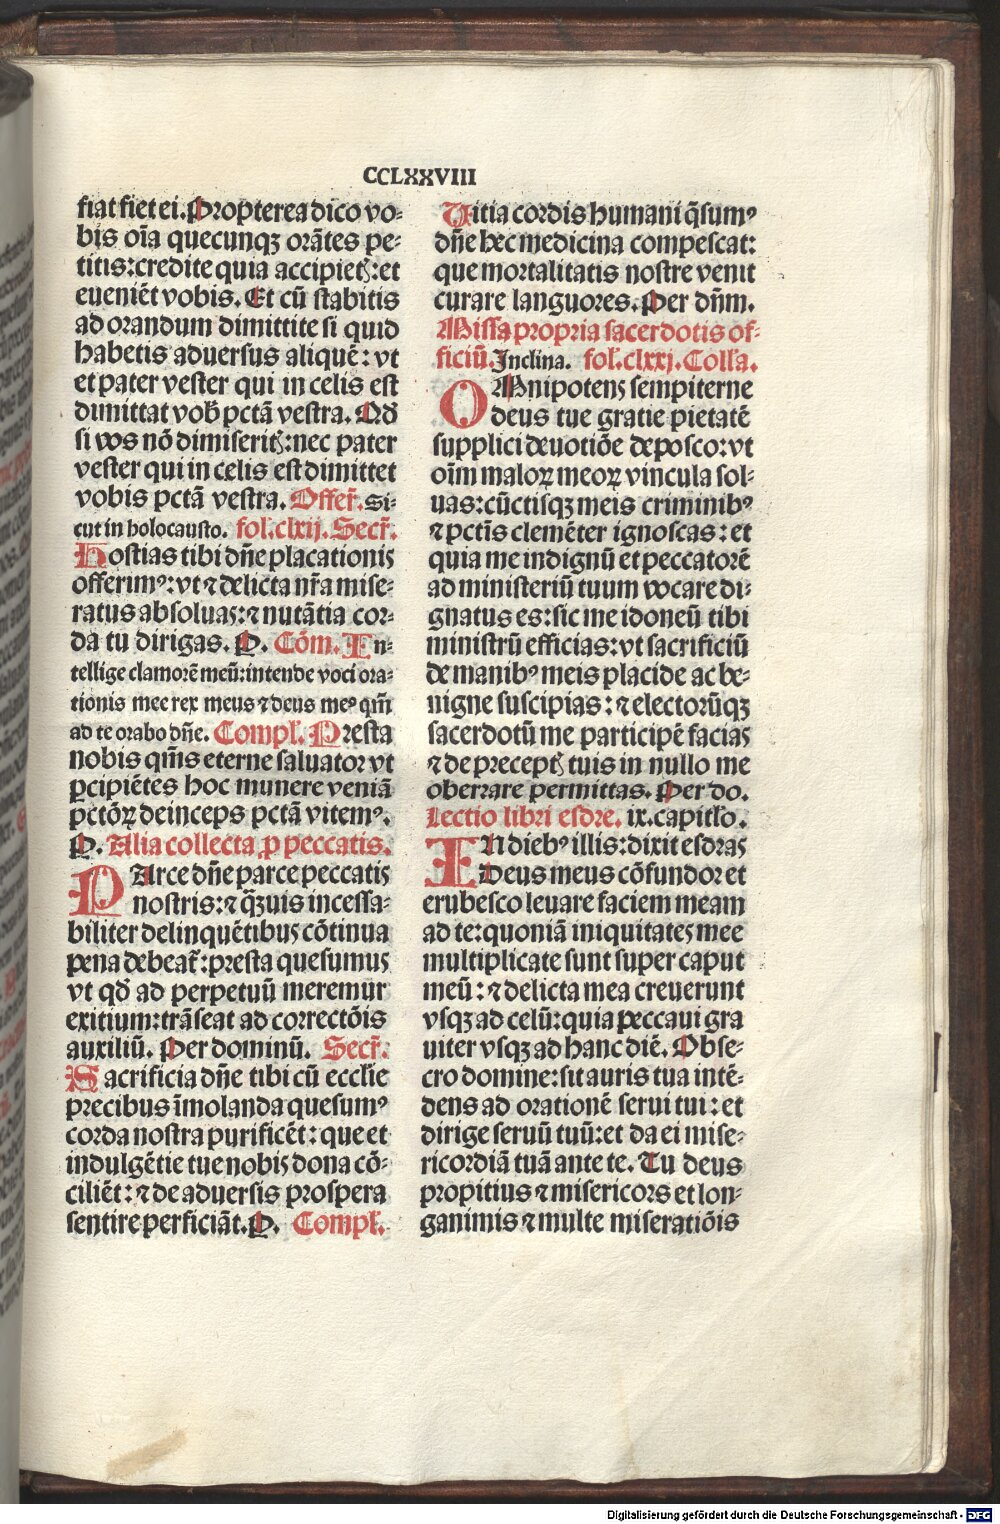 CCLXXVIII
fiat fiet ei. Propterea dico vo⸗
bis oīa quecunqꝫ orātes pe⸗
titis: credite quia accipietꝭ: et
eueniēt vobis. Et cū stabitis
ad orandum dimittite si quid
habetis aduersus aliquē: vt
et pater vester qui in celis est
dimittat vob̄ pctā vestra. Qd̄
si vos nō dimiseritꝭ: nec pater
vester qui in celis est dimittet
vobis pctā vestra. Offer̄. Si⸗
cut in holocausto. fol. clxij. Secr̄.
Hostias tibi dn̄e placationis
offerimꝰ: vt ⁊ delicta nr̄a mise⸗
ratus absoluas: ⁊ nutātia cor⸗
da tu dirigas. P. Cōm. In⸗
tellige clamorē meū: intende voci ora⸗
tionis mee rex meus ⁊ deus meꝰ qm̄
ad te orabo dn̄e. Compl̄. Presta
nobis qm̄s eterne saluator vt
ꝑcipiētes hoc munere veniā
pctōꝝ deinceps pctā vitemꝰ.
P. Alia collecta ꝓ peccatis.
PArce dn̄e parce peccatis
nostris: ⁊ qꝫuis incessa⸗
biliter delinquētibus cōtinua
pena debeat̄: presta quesumus
vt qd̄ ad perpetuū meremur
exitium: trāseat ad correctōis
auxiliū. Per dominū. Secr̄.
Sacrificia dn̄e tibi cū ecclie
precibus īmolanda quesumꝰ
corda nostra purificēt: que et
indulgētie tue nobis dona cō⸗
ciliēt: ⁊ de aduersis prospera
sentire perficiāt. P. Compl̄.
Vitia cordis humani q̄sumꝰ
dn̄e hec medicina compescat:
que mortalitatis nostre venit
curare languores. Per dn̄m.
Missa propria sacerdotis of⸗
ficiū. Inclina. fol. clxxj. Coll̄a.
OMnipotens sempiterne
deus tue gratie pietatē
supplici deuotiōe deposco: vt
oīm maloꝝ meoꝝ vincula sol⸗
uas: cūctisqꝫ meis criminibꝰ
⁊ pctīs clemēter ignoscas: et
quia me indignū et peccatorē
ad ministeriū tuum vocare di⸗
gnatus es: sic me idoneū tibi
ministrū efficias: vt sacrificiū
de manibꝰ meis placide ac be⸗
nigne suscipias: ⁊ electorūqꝫ
sacerdotū me participē facias
⁊ de preceptꝭ tuis in nullo me
oberrare permittas. Per do.
Lectio libri esdre. ix. capitl̄o.
IN diebꝰ illis: dixit esdras
Deus meus cōfundor et
erubesco leuare faciem meam
ad te: quoniā iniquitates mee
multiplicate sunt super caput
meū: ⁊ delicta mea creuerunt
vsqꝫ ad celū: quia peccaui gra
uiter vsqꝫ ad hanc diē. Obse⸗
cro domine: sit auris tua intē⸗
dens ad orationē serui tui: et
dirige seruū tuū: et da ei mise⸗
ricordiā tuā ante te. Tu deus
propitius ⁊ misericors et lon⸗
ganimis ⁊ multe miseratiōis
Digitalisierung gefördert durch die Deutsche Forschungsgemeinschaft - DFG